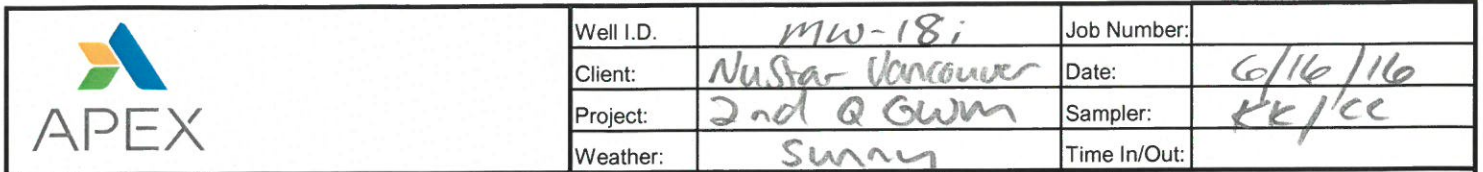 APEX
Well I.D. MW-18i Job Number:
Client: NuStar Vancouver Date: 6/16/16
Project: 2nd Q GWM Sampler: KK/CC
Weather: Sunny Time In/Out: